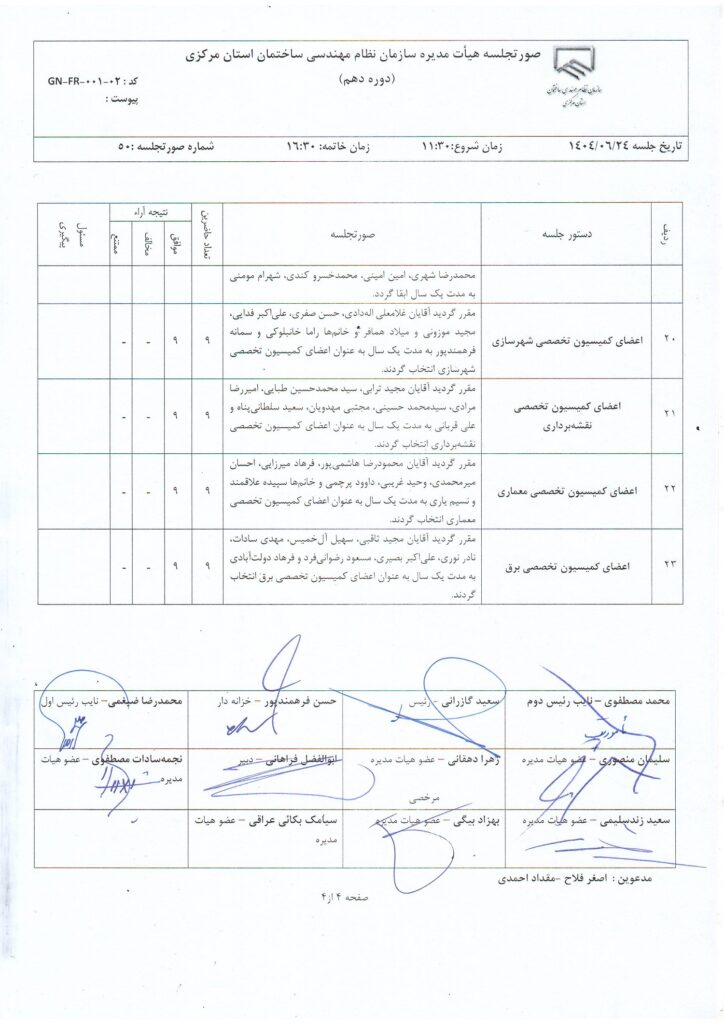 صورتجلسه هیأت مدیره سازمان نظام مهندسی ساختمان استان مرکزی
(دوره دهم)
سازمان نظام مهندسی ساختمان
استان مرکزی
کد : GN-FR-۰۰۱-۰۲
پیوست :
تاریخ جلسه ۱۴۰۴/۰۶/۲۴
زمان شروع: ۱۱:۳۰
زمان خاتمه: ۱۶:۳۰
شماره صورتجلسه :۵۰
ردیف
دستور جلسه
صورتجلسه
تعداد حاضرین
نتیجه آراء
موافق
مخالف
ممتنع
مسئول پیگیری
محمدرضا شهری، امین امینی، محمدخسرو کندی، شهرام مومنی
به مدت یک سال ابقا گردد.
۲۰
اعضای کمیسیون تخصصی شهرسازی
مقرر گردید آقایان غلامعلی اله‌دادی، حسن صفری، علی‌اکبر فدایی،
مجید موزونی و میلاد همافر و خانم‌ها راما خانبلوکی و سمانه
فرهمندپور به مدت یک سال به عنوان اعضای کمیسیون تخصصی
شهرسازی انتخاب گردند.
۹
۹
-
-
۲۱
اعضای کمیسیون تخصصی
نقشه‌برداری
مقرر گردید آقایان مجید ترابی، سید محمدحسین طبایی، امیررضا
مرادی، سیدمحمد حسینی، مجتبی مهدویان، سعید سلطانی‌پناه و
علی قربانی به مدت یک سال به عنوان اعضای کمیسیون تخصصی
نقشه‌برداری انتخاب گردند.
۹
۹
-
-
۲۲
اعضای کمیسیون تخصصی معماری
مقرر گردید آقایان محمودرضا هاشمی‌پور، فرهاد میرزایی، احسان
میرمحمدی، وحید غریبی، داوود پرچمی و خانم‌ها سپیده علاقمند
و نسیم یاری به مدت یک سال به عنوان اعضای کمیسیون تخصصی
معماری انتخاب گردند.
۹
۹
-
-
۲۳
اعضای کمیسیون تخصصی برق
مقرر گردید آقایان مجید ثاقبی، سهیل آل‌خمیس، مهدی سادات،
نادر نوری، علی‌اکبر بصیری، مسعود رضوانی‌فرد و فرهاد دولت‌آبادی
به مدت یک سال به عنوان اعضای کمیسیون تخصصی برق انتخاب
گردند.
۹
۹
-
-
محمد مصطفوی – نایب رئیس دوم
سعید گازرانی – رئیس
حسن فرهمندپور – خزانه دار
محمدرضا ضیغمی – نایب رئیس اول
سلیمان منصوری – عضو هیات مدیره
زهرا دهقانی – عضو هیات مدیره
مرخصی
ابوالفضل فراهانی – دبیر
نجمه‌سادات مصطفوی – عضو هیات
مدیره
سعید زندسلیمی – عضو هیات مدیره
بهزاد بیگی – عضو هیات مدیره
سیامک بکائی عراقی – عضو هیات
مدیره
مدعوین : اصغر فلاح –مقداد احمدی
صفحه ۴ از ۴